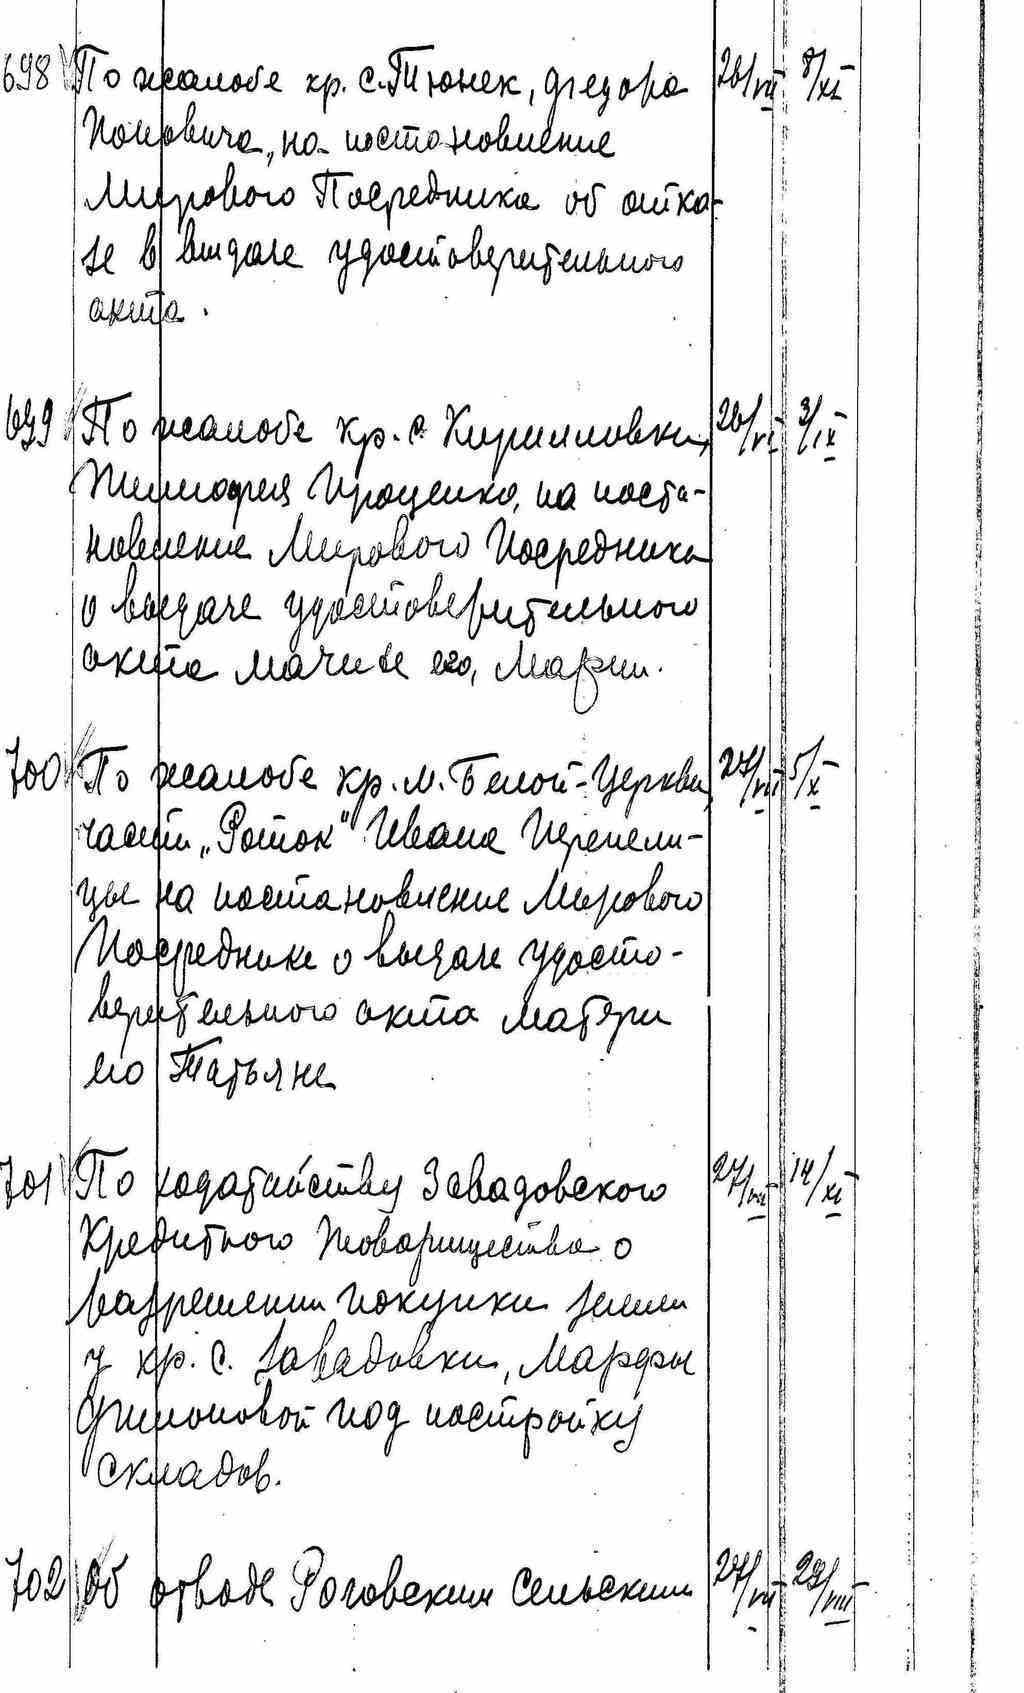 698 По жалобе кр. с. Тюнек, Федора 26/VII 8/XI
Поповича, на постановление
Мирового Посредника об отка-
зе в выдаче удостоверительного
акта.
699 По жалобе кр. с. Кирилловки, 26/VI 3/IX
Тимофея Проценко, на поста-
новление Мирового Посредника
о выдаче удостоверительного
акта мачихе его, Марии.
700 По жалобе кр. м. Белой-Церкви, 27/VII 5/X
части „Роток" Ивана Перепели-
цы на постановление Мирового
Посредника о выдаче удосто-
верительного акта матери
его Татьяне
701 По ходатайству Завадовского 27/VII 14/XI
Кредитного Товарищества о
разрешении покупки земли
у кр. с. Завадовки, Марфы
Филоновой под постройку
складов.
702 Об отводе Роговским сельским 27/VII 29/VIII